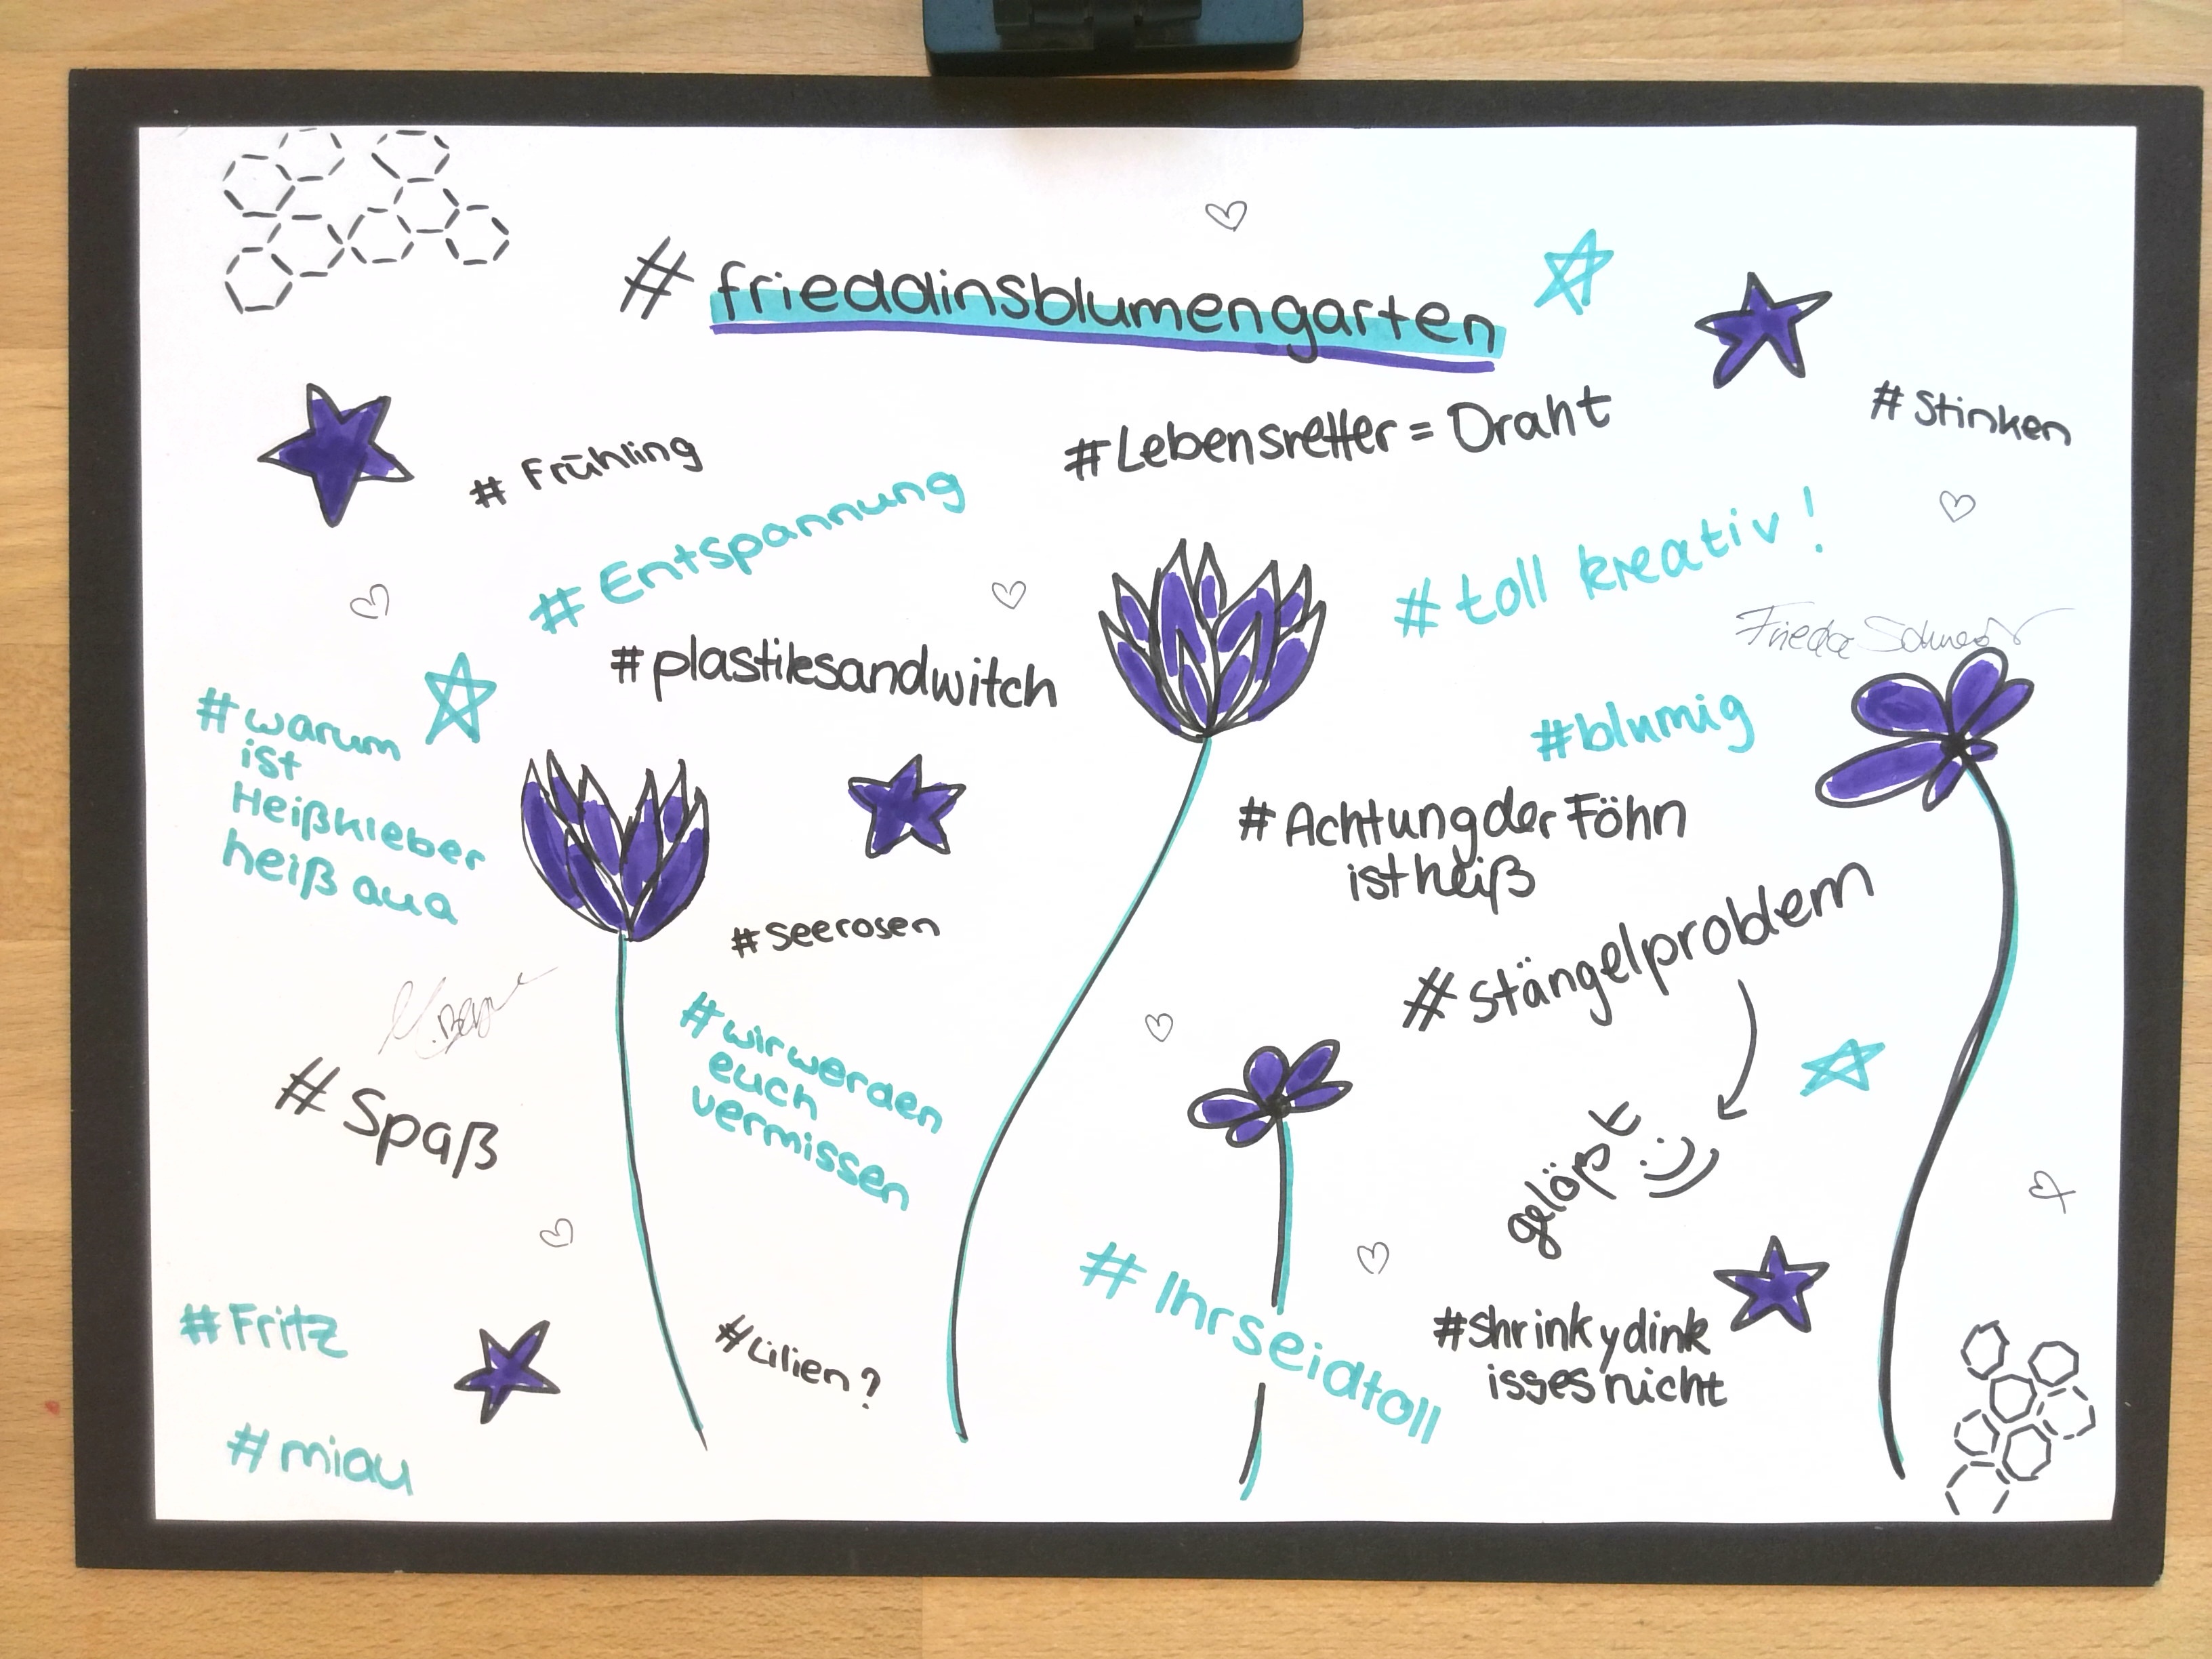 # frieddinsblumengarten
# Stinken
#Lebensretter = Draht
# Frühling
# Entspannung
# toll kreativ!
#plastiksandwitch
Frieda
#blumig
#warum
ist
Heißkleber
heiß aua
#Achtung der Föhn
ist heiß
#seerosen
#stängelproblem
gelößt :))
#wirwerden
euch
vermissen
# Spaß
# Ihrseidtoll
#Fritz
#Lilien?
#shrinkydink
isses nicht
#miau